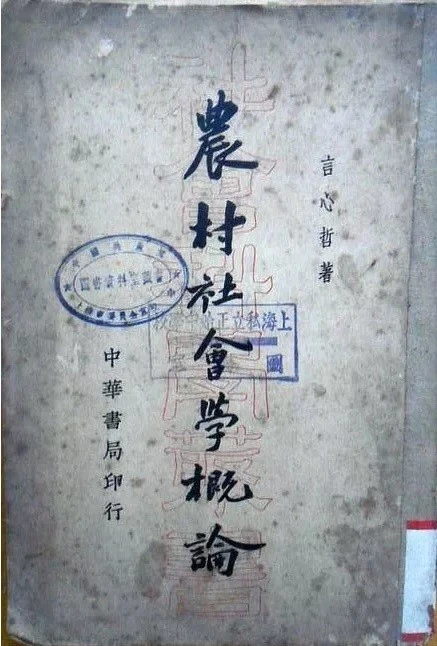 言心哲著
農村社會學概論
中華書局印行
上海私立正
圖